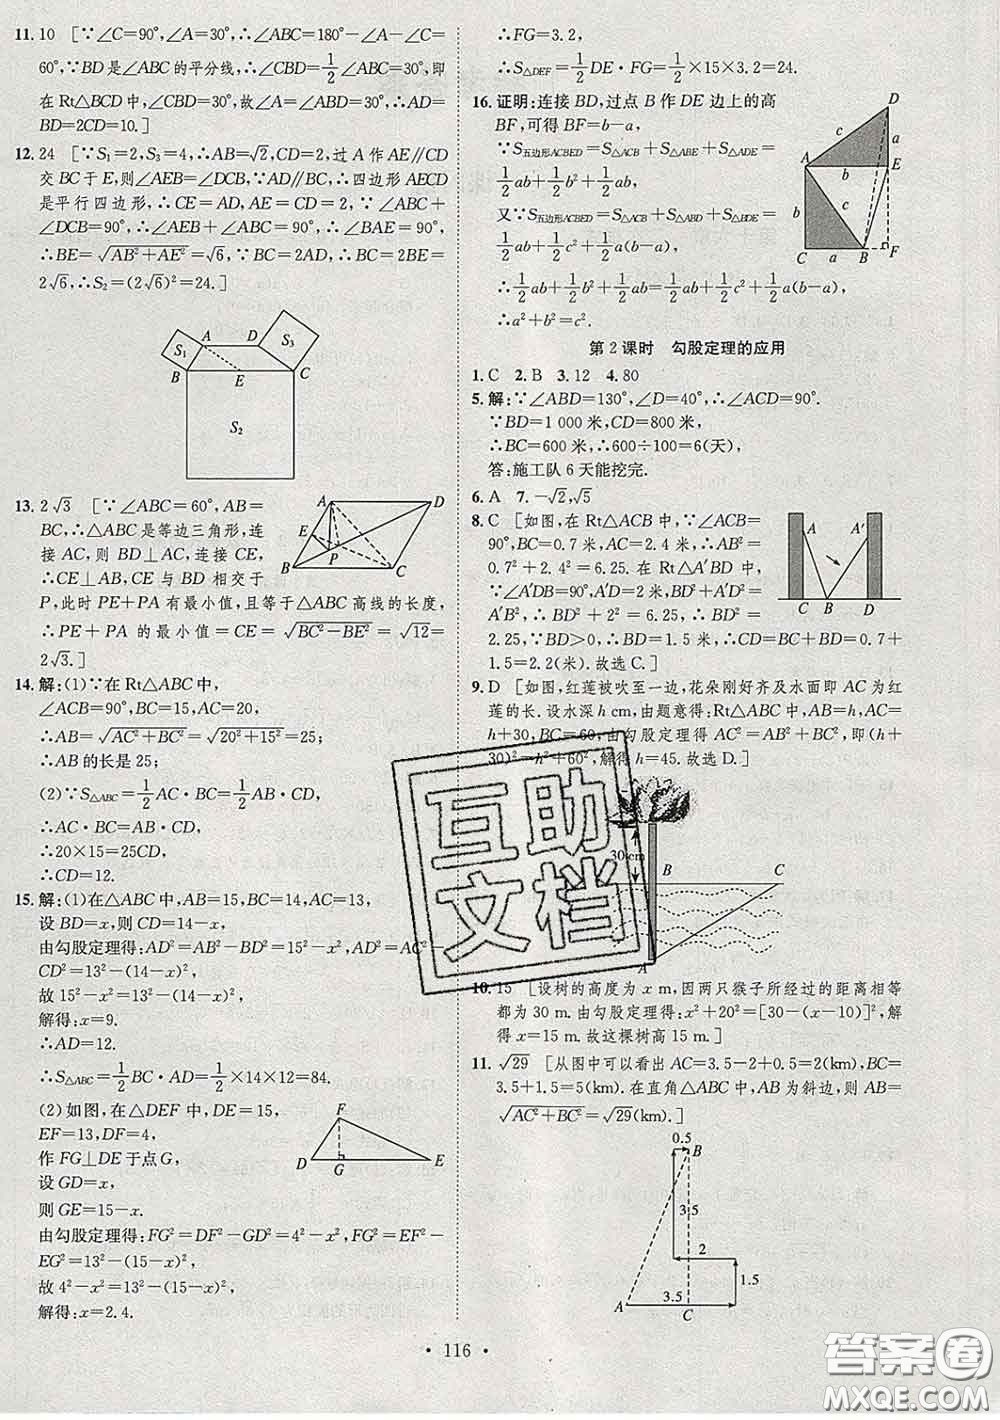 11. 10 [∵∠C=90°,∠A=30°,∴∠ABC=180°-∠A-∠C=
60°,∵BD是∠ABC的平分线,∴∠CBD=1/2∠ABC=30°,即
在Rt△BCD中,∠CBD=30°,故∠A=∠ABD,∴AD=
BD=2CD=10.]
12. 24 [∵S₁=2,S₃=4,∴AB=√2,CD=2,过A作AE∥CD
交BC于E,则∠AEB=∠DCB,∵AD∥BC,∴四边形AECD
是平行四边形,∴CE=AD,AE=CD=2,∵∠ABC+
∠DCB=90°,∴∠AEB+∠ABC=90°,∴∠BAE=90°,
∴BE=√(AB²+AE²)=√6,∵BC=2AD,∴BC=2BE=
2√6,∴S₂=(2√6)²=24.]
S₁ A D S₃
B E C
S₂
13. 2√3 [∵∠ABC=60°,AB=
BC,∴△ABC是等边三角形,连
接AC,则BD⊥AC,连接CE,
∴CE⊥AB,CE与BD相交于
P,此时PE+PA有最小值,且等于△ABC高线的长度,
∴PE+PA的最小值=CE=√(BC²-BE²)=√12=
2√3.]
A D
E
P
B C
14. 解:(1)∵在Rt△ABC中,
∠ACB=90°,BC=15,AC=20,
∴AB=√(AC²+BC²)=√(20²+15²)=25;
∴AB的长是25;
(2)∵S△ABC=1/2AC·BC=1/2AB·CD,
∴AC·BC=AB·CD,
∴20×15=25CD,
∴CD=12.
15. 解:(1)在△ABC中,AB=15,BC=14,AC=13,
设BD=x,则CD=14-x,
由勾股定理得:AD²=AB²-BD²=15²-x²,AD²=AC²-
CD²=13²-(14-x)²,
故15²-x²=13²-(14-x)²,
解得:x=9.
∴AD=12.
∴S△ABC=1/2BC·AD=1/2×14×12=84.
(2)如图,在△DEF中,DE=15,
EF=13,DF=4,
作FG⊥DE于点G,
设GD=x,
则GE=15-x.
由勾股定理得:FG²=DF²-GD²=4²-x²,FG²=EF²-
EG²=13²-(15-x)²,
故4²-x²=13²-(15-x)²,
解得:x=2.4.
F
D G E
∴FG=3.2,
∴S△DEF=1/2DE·FG=1/2×15×3.2=24.
16. 证明:连接BD,过点B作DE边上的高
BF,可得BF=b-a,
∵S五边形ACBED=S△ACB+S△ABE+S△ADE=
1/2ab+1/2b²+1/2ab,
又∵S五边形ACBED=S△ACB+S△ABD+S△BDE=
1/2ab+1/2c²+1/2a(b-a),
∴1/2ab+1/2b²+1/2ab=1/2ab+1/2c²+1/2a(b-a),
∴a²+b²=c².
D
c a
A b E
b c
C a B F
第2课时 勾股定理的应用
1. C 2. B 3. 12 4. 80
5. 解:∵∠ABD=130°,∠D=40°,∴∠ACD=90°.
∵BD=1 000米,CD=800米,
∴BC=600米,∴600÷100=6(天),
答:施工队6天能挖完.
6. A 7. -√2,√5
8. C [如图,在Rt△ACB中,∵∠ACB=
90°,BC=0.7米,AC=2.4米,∴AB²=
0.7²+2.4²=6.25.在Rt△A′BD中,
∵∠A′DB=90°,A′D=2米,BD²+A′D²=
A′B²,∴BD²+2²=6.25,∴BD²=
2.25,∵BD>0,∴BD=1.5米,∴CD=BC+BD=0.7+
1.5=2.2(米).故选C.]
A A′
C B D
9. D [如图,红莲被吹至一边,花朵刚好齐及水面即AC为红
莲的长.设水深h cm,由题意得:Rt△ABC中,AB=h,AC=
h+30,BC=60,由勾股定理得AC²=AB²+BC²,即(h+
30)²=h²+60²,解得h=45.故选D.]
30 cm B C
A
10. 15 [设树的高度为x m,因两只猴子所经过的距离相等
都为30 m.由勾股定理得:x²+20²=[30-(x-10)]²,解
得x=15 m.故这棵树高15 m.]
11. √29 [从图中可以看出AC=3.5-2+0.5=2(km),BC=
3.5+1.5=5(km).在直角△ABC中,AB为斜边,则AB=
√(AC²+BC²)=√29(km).]
0.5
B
3.5
2
1.5
3.5
A C
互助
文档
· 116 ·
答案圈
MXQE.COM